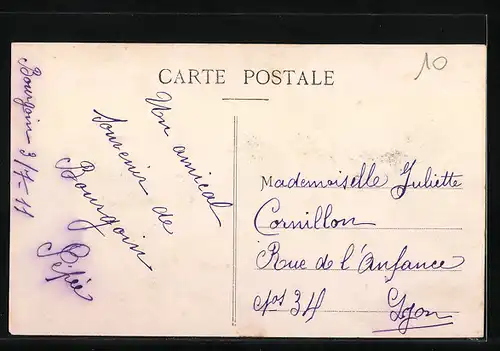 10
CARTE POSTALE
Bourgoin 3/7-11
Un amical
souvenir de
Bourgoin
Pépée
Mademoiselle Juliette
Cornillon
Rue de l'Anfance
Nos 34 Lyon